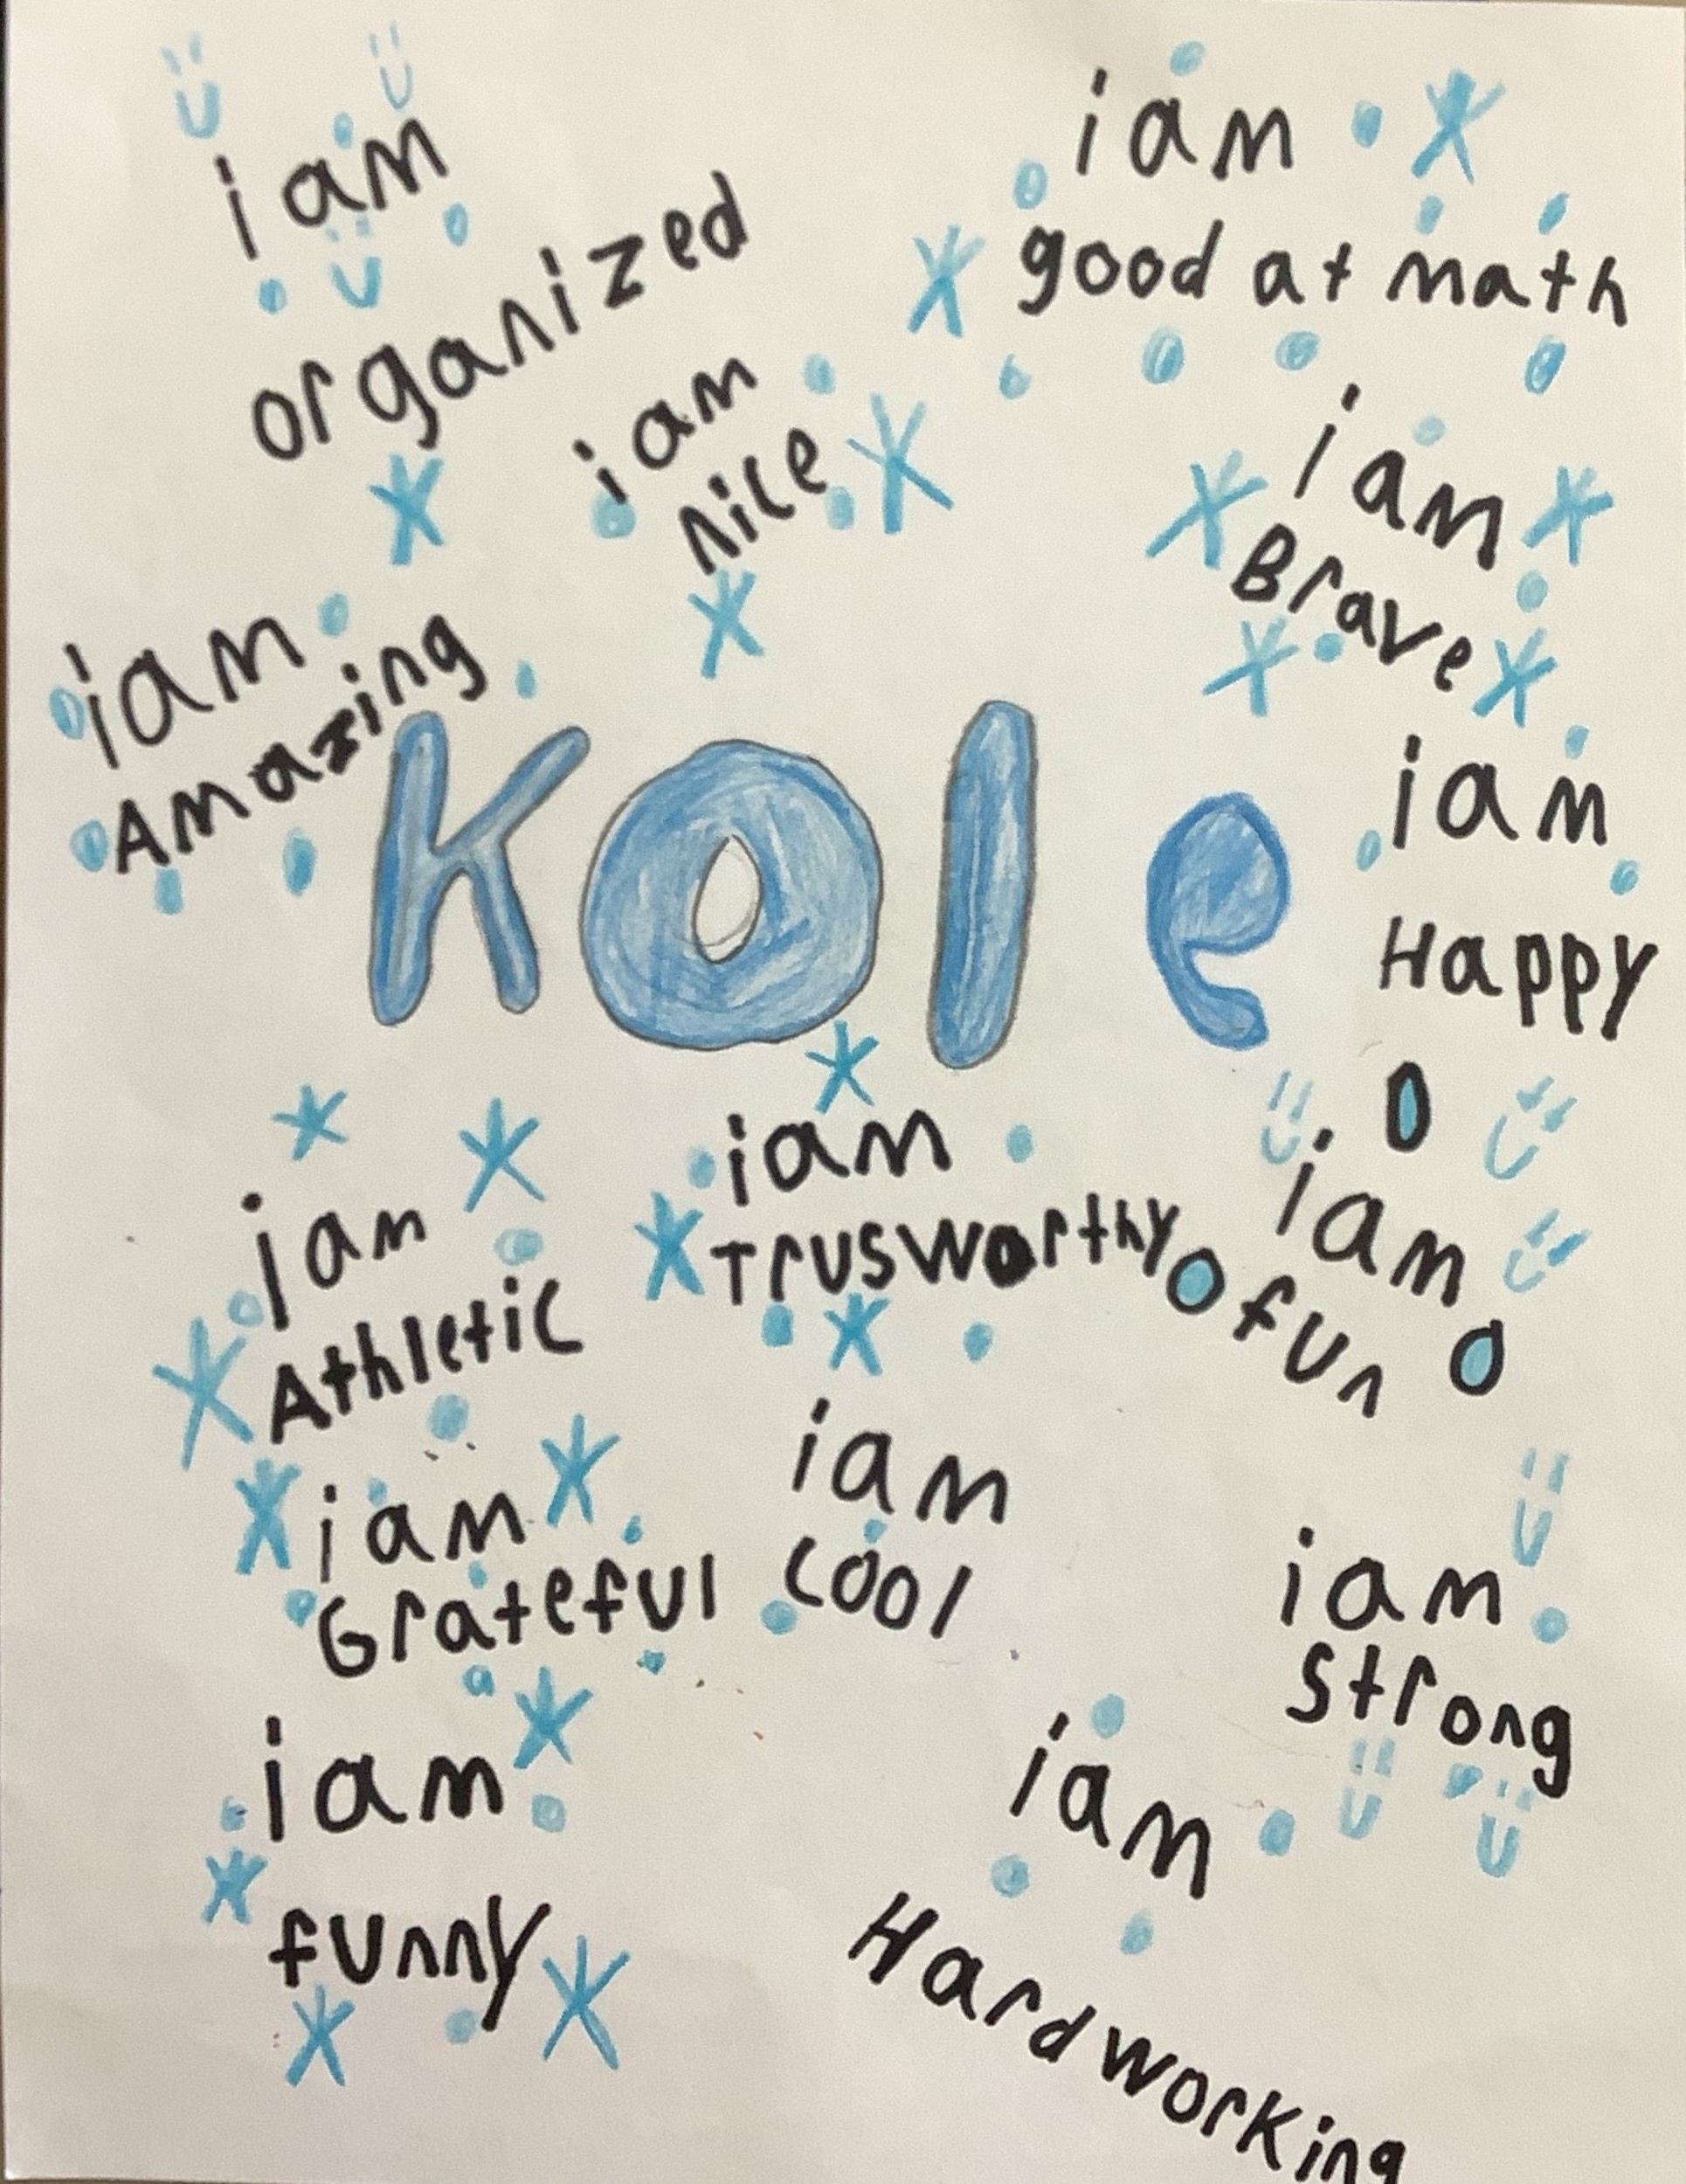 i am
organized
i am
good at math
i am
nice
i am
Brave
i am
Amazing
Kole
i am
Happy
i am
Trusworthy
i am
fun
i am
Athletic
i am
Grateful
i am
cool
i am
strong
i am
funny
i am
Hardworking